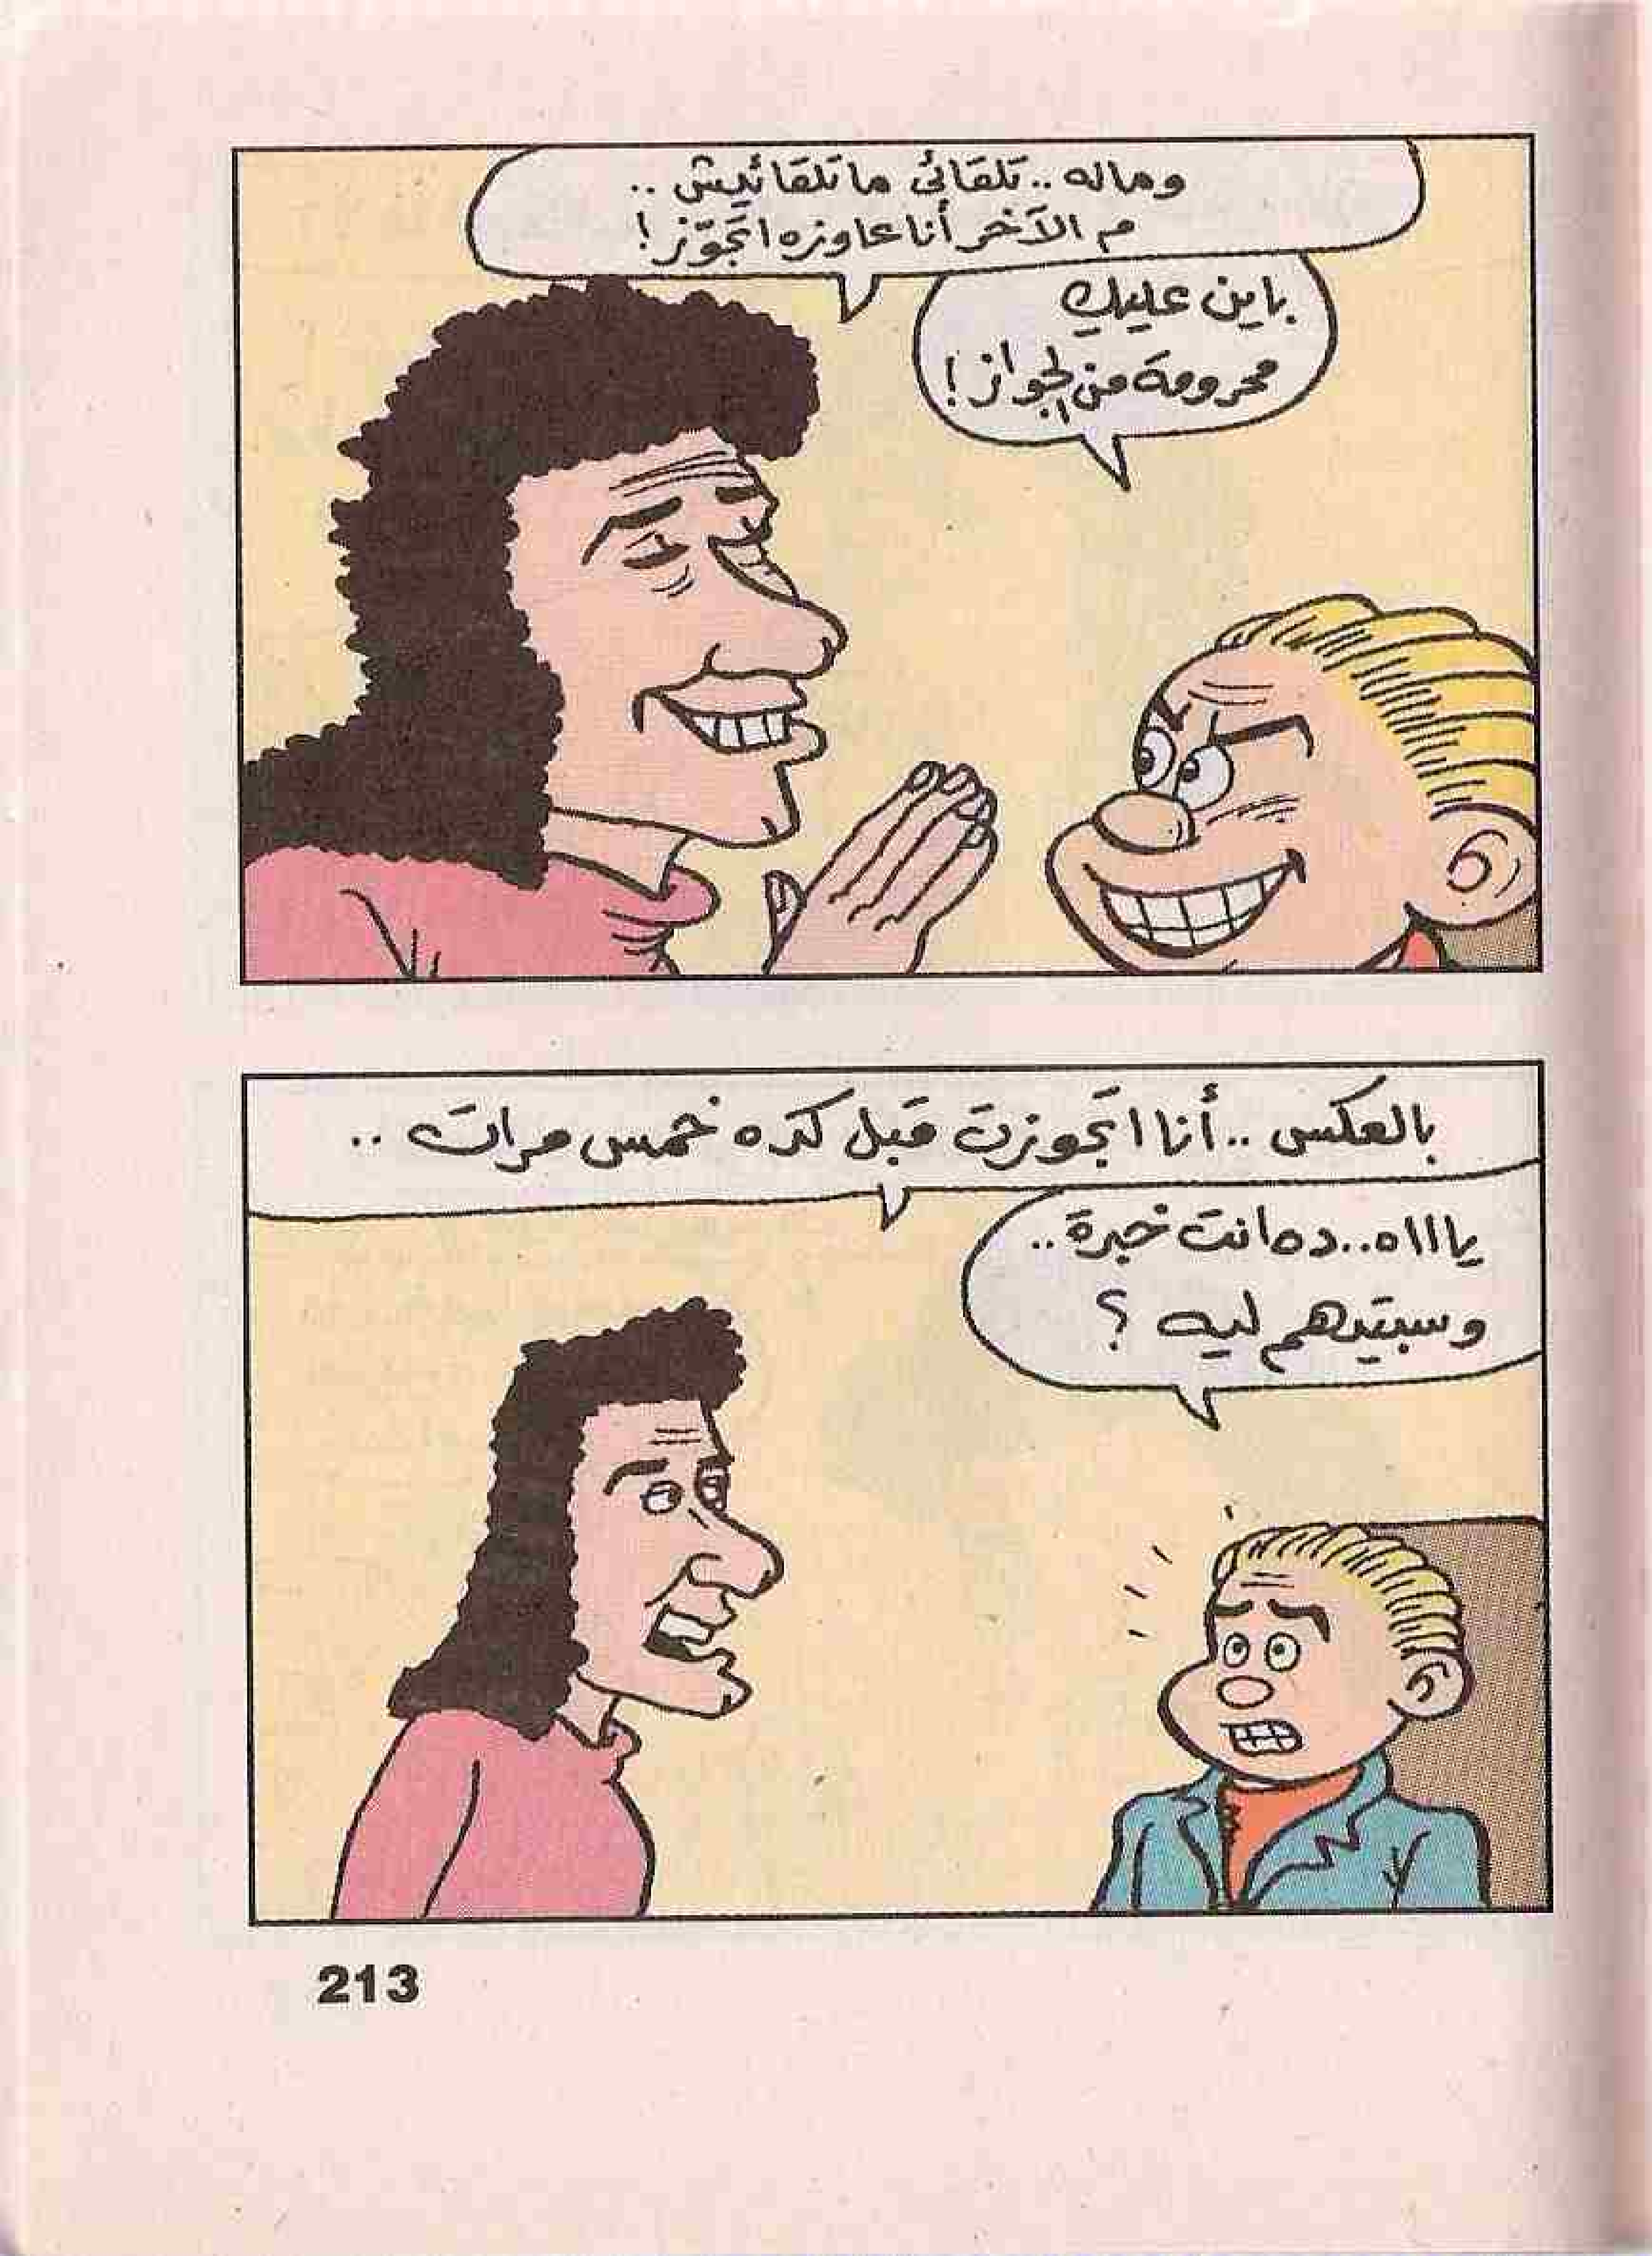 وماله .. تلقائى ماتلقائيش ..
م الآخر أنا عاوزه اتجوّز !
باين عليكِ
محرومة من الجواز !
بالعكس .. أنا اتجوزت قبل كده خمس مرات ..
ياااه .. ده انت خبرة ..
وسبتيهم ليه ؟
213